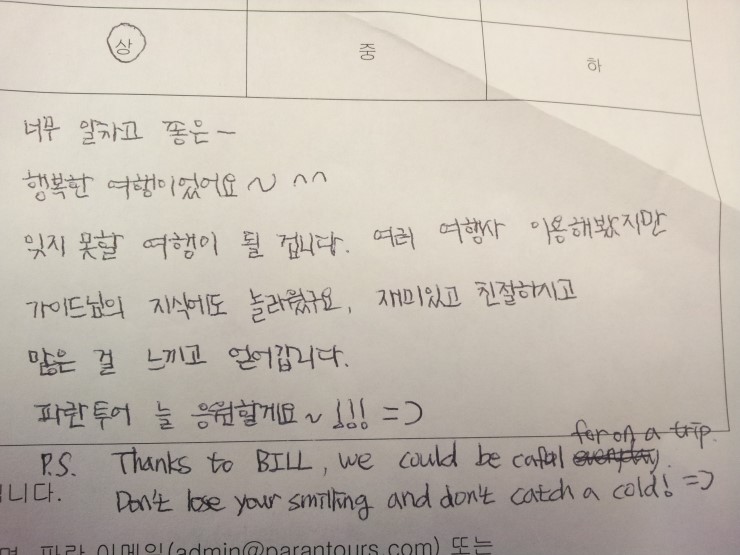 상 중 하
너무 알차고 좋은~
행복한 여행이었어요~ ^^
잊지 못할 여행이 될 겁니다. 여러 여행사 이용해봤지만
가이드님의 지식에도 놀라웠구요, 재미있고 친절하시고
많은 걸 느끼고 얻어갑니다.
파란투어 늘 응원할게요~ !!! =)
for on a trip.
P.S. Thanks to BILL, we could be
니다. Don't lose your smilling and don't catch a cold! =)
며 파란 이메일(admin@parantours.com) 또는